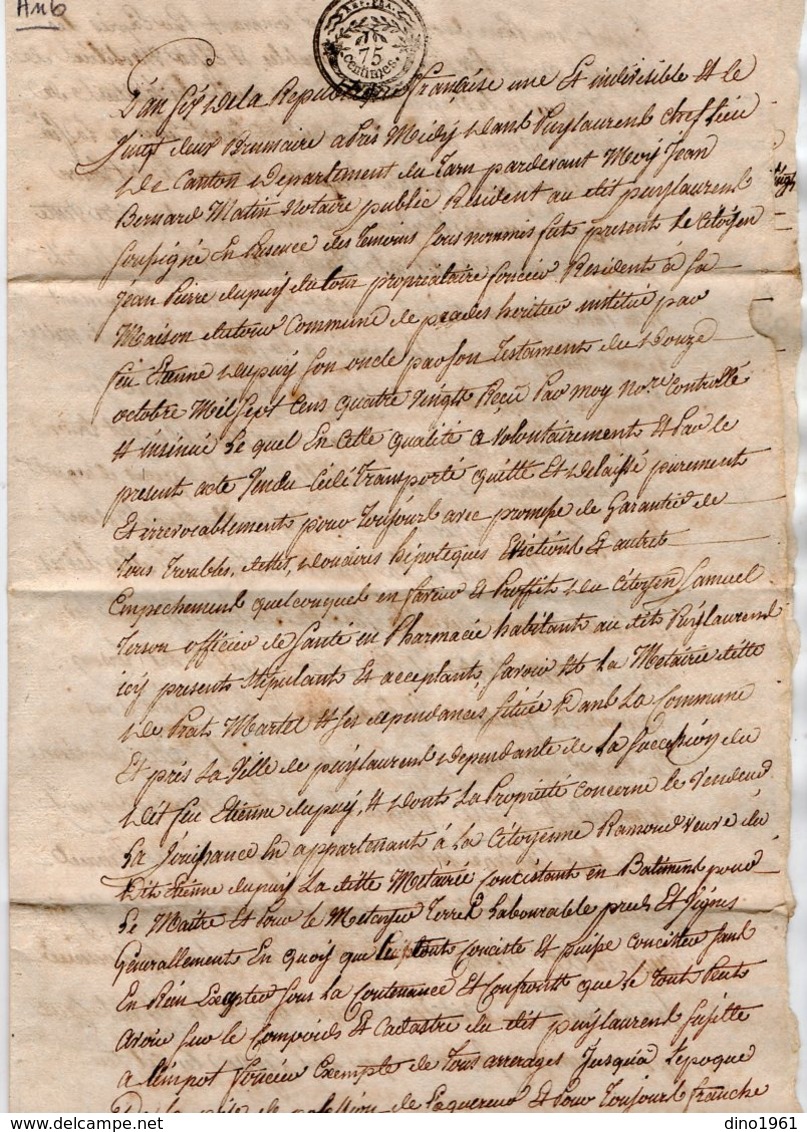 An 6
REP. FRA.
75
centimes.
L'an six de la Republique française une Et indivisible Et le
vingt deux Brumaire apres Midy dans Puylaurens chef lieu
de Canton departement du Tarn pardevant Moy Jean
Bernard Matin Notaire public Resident au dit puylaurens
soussigné En presence des temoins sous nommés fut present le Citoyen
Jean Pierre dupuy propriétaire foncier Resident à sa
Maison commune de heritier institué par
feu Etienne dupuy son oncle par son Testament du douze
octobre Mil sept cens quatre vingts Reçu Par moy no.re Controllé
& insinué Le quel En cette qualité a volontairement Et Par le
present acte Vendu cédé transporté quitté Et delaissé purement
Et irrevocablement pour Toujours avec promesse de Garantie de
tous troubles, dettes, douaires hipoteques Evictions Et autres
Empechemens quelconques en faveur Et Proffit du Citoyen Samuel
Terson officier de Santé en Pharmacie habitant au dit Puylaurens
icy present stipulant Et acceptant, savoir Est la Metairie dite
de Prat Martel & ses dependances située Dans La Commune
Et près La Ville de puylaurens dependante de la succession du
dit feu Etienne dupuy, & dont La Proprieté concerne le Vendeur
La Jouissance En appartenant à La Citoyenne Ramond veuve du
Dit Etienne dupuy La dite Metairie consistant en Batiment pour
Le Maitre Et Pour le Metayer Terres Labourable preds Et Vignes
Generallement En quoy que le tout consiste & puisse consister sans
En Rien Excepter sous la Contenance Et Confronts que le tout Peut
avoir sur le Compoids Et Cadastre du dit puylaurens sujette
a L'impot foncier Exempte de Tous arrerages Jusqua L'epoque
De la prise de possession de L'aquereur Et Pour Toujours franche
dino1961